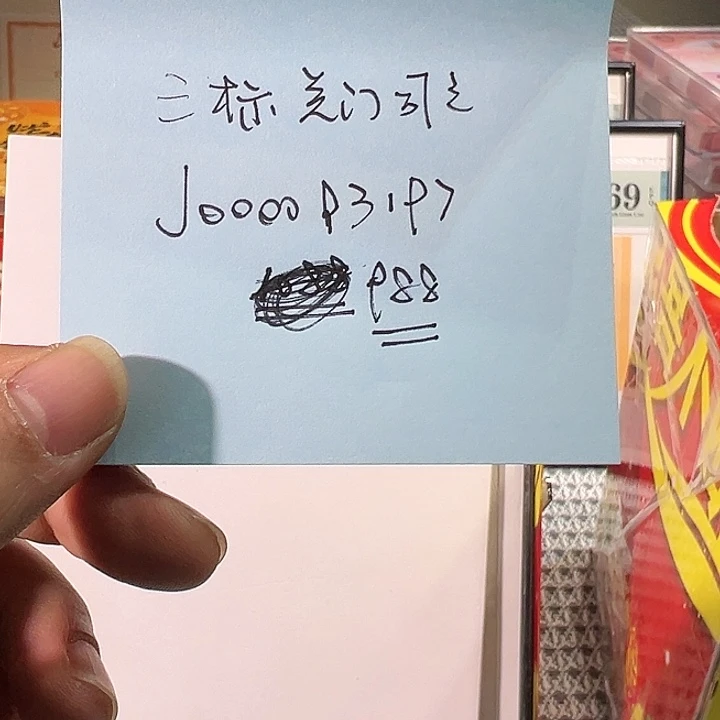 三标关门引之
J0000P31P7
P88
69